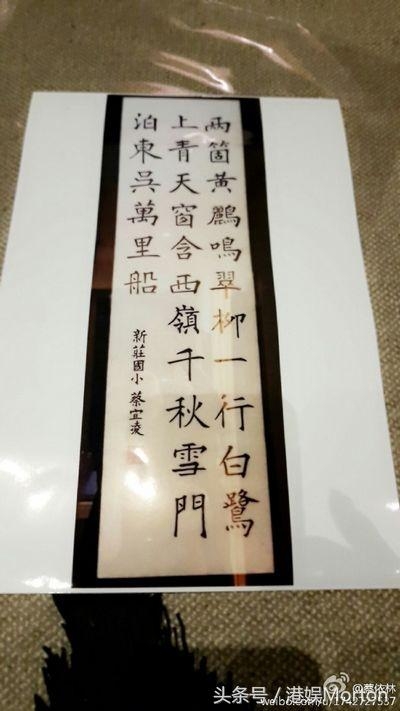 兩箇黃鸝鳴翠柳一行白鷺
上青天窗含西嶺千秋雪門
泊東吳萬里船
新莊國小 蔡宜凌
@蔡依林
头条号 / 港娱Morton
weibo.com/u/1742727537